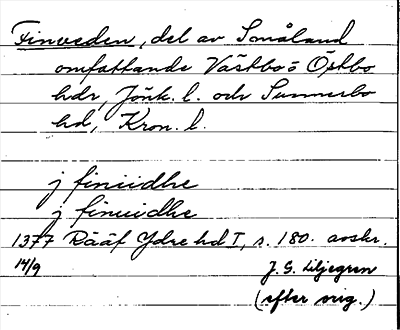 Finveden, del av Småland
omfattande Västbo o Östbo
hdr, Jönk. l. och Sunnerbo
hd, Kron. l.
j finiidhe
j finuidhe
1377 Rääf Ydre hd I, s. 180. avskr.
14/9 J. G. Liljegren
(efter orig.)